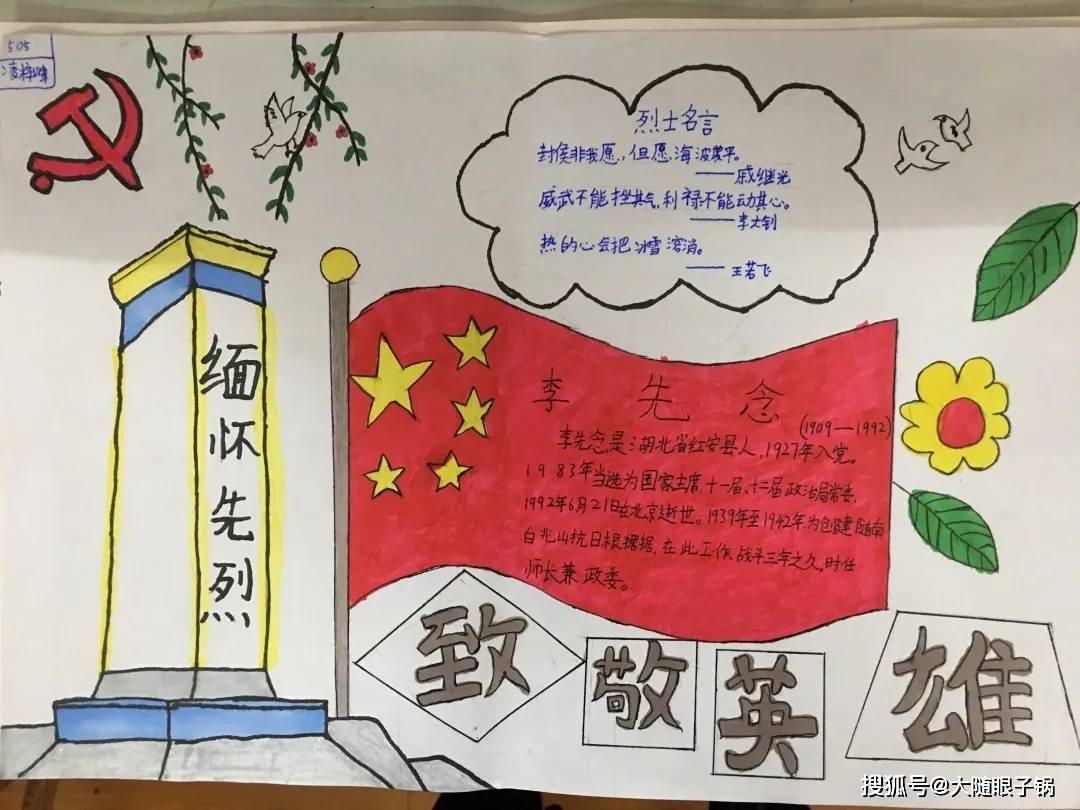 505
凌梓峰
烈士名言
封侯非我愿,但愿海波平。
——戚继光
威武不能挫其气,利禄不能动其心。
——李大钊
热的心会把冰雪溶消。
——王若飞
缅怀先烈
李先念
(1909—1992)
李先念是湖北省红安县人,1927年入党。
1983年当选为国家主席,十一届、十二届政治局常委,
1992年6月21日在北京逝世。1939年至1942年为创建随南
白兆山抗日根据据,在此工作、战斗三年之久,时任
师长兼政委。
致敬英雄
搜狐号@大随眼子锅